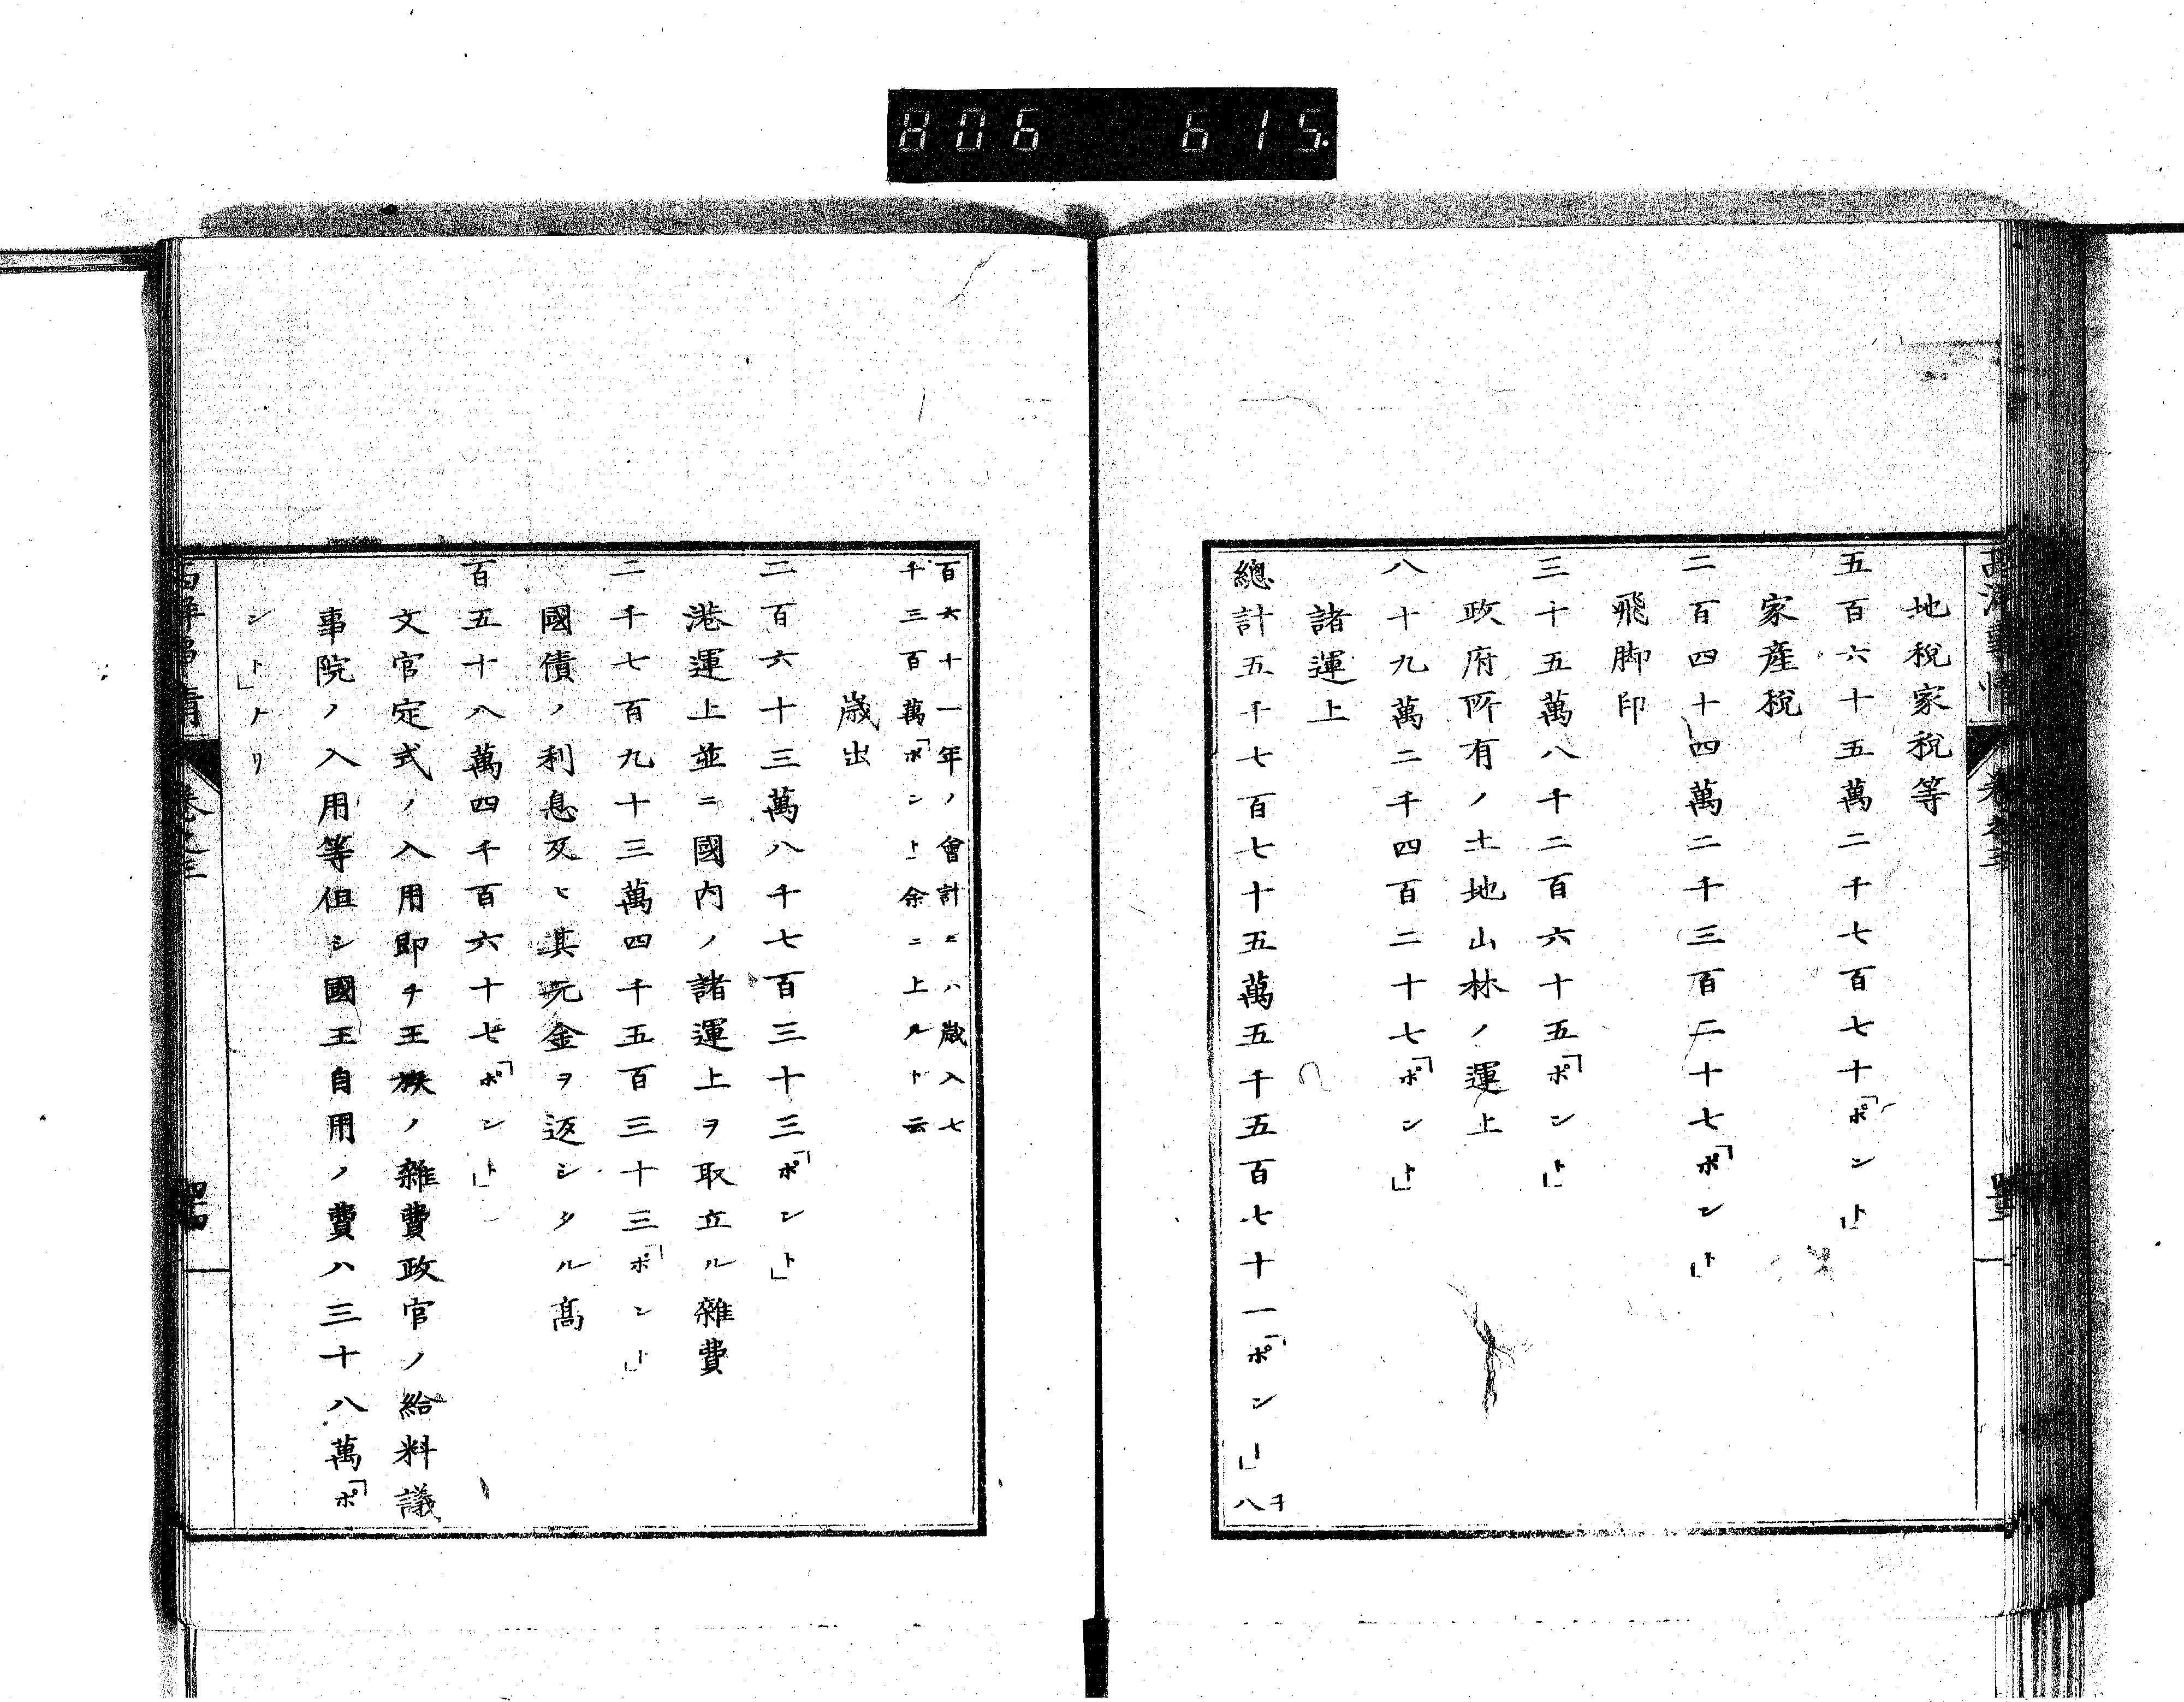 806 615
西洋事情 卷之三
地税家税等
五百六十五萬二千七百七十「ポンド」
家産税
二百四十四萬二千三百二十七「ポント」
飛脚印
三十五萬八千二百六十五「ポント」
政府所有ノ土地山林ノ運上
八十九萬二千四百二十七「ポント」
諸運上
總計五千七百七十五萬五千五百七十一「ポント」千八
百六十一年ノ會計ニハ歳入七
千三百萬「ポント余ニ上ルト云
歳出
二百六十三萬八千七百三十三「ポント」
港運上並ニ國内ノ諸運上ヲ取立ル雜費
二千七百九十三萬四千五百三十三「ポント」
國債ノ利息及ヒ其元金ヲ返シタル高
百五十八萬四千百六十七「ポント」
文官定式ノ入用即チ王族ノ雜費政官ノ給料議
事院ノ入用等但シ國王自用ノ費ハ三十八萬「ポ
ント」ナリ
西洋事情 卷之三 四十四